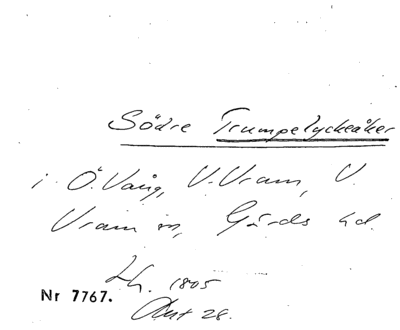 Södre Trumpelyckeåker
i Ö. Vång, V. Vram, V.
Vram sn, Gärds hd.
Lh. 1805
Nr 7767.
Akt 28.